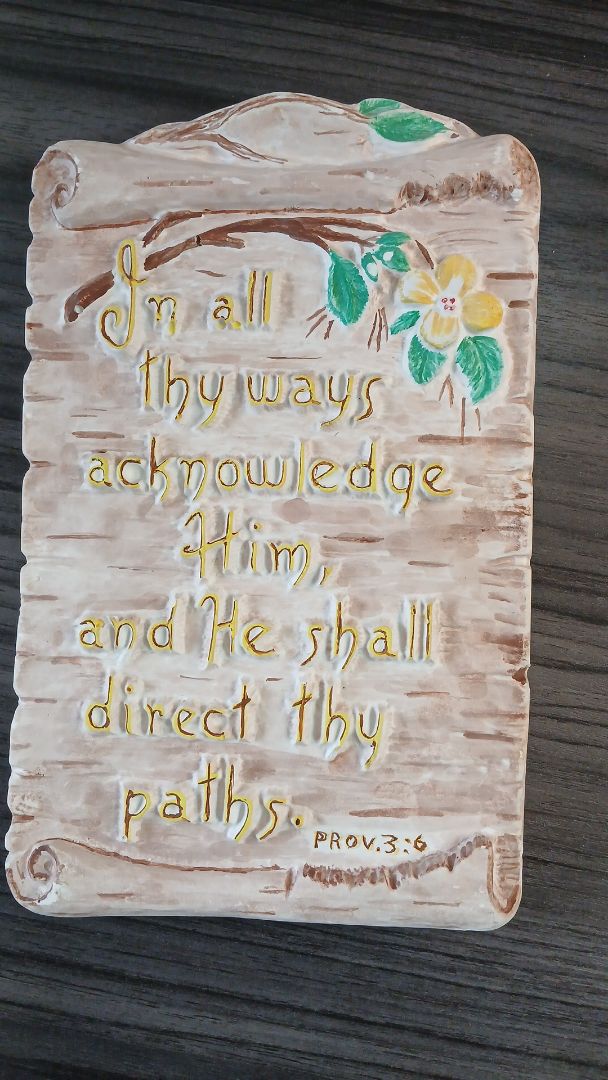 In all
thy ways
acknowledge
Him,
and He shall
direct thy
paths.
PROV.3:6